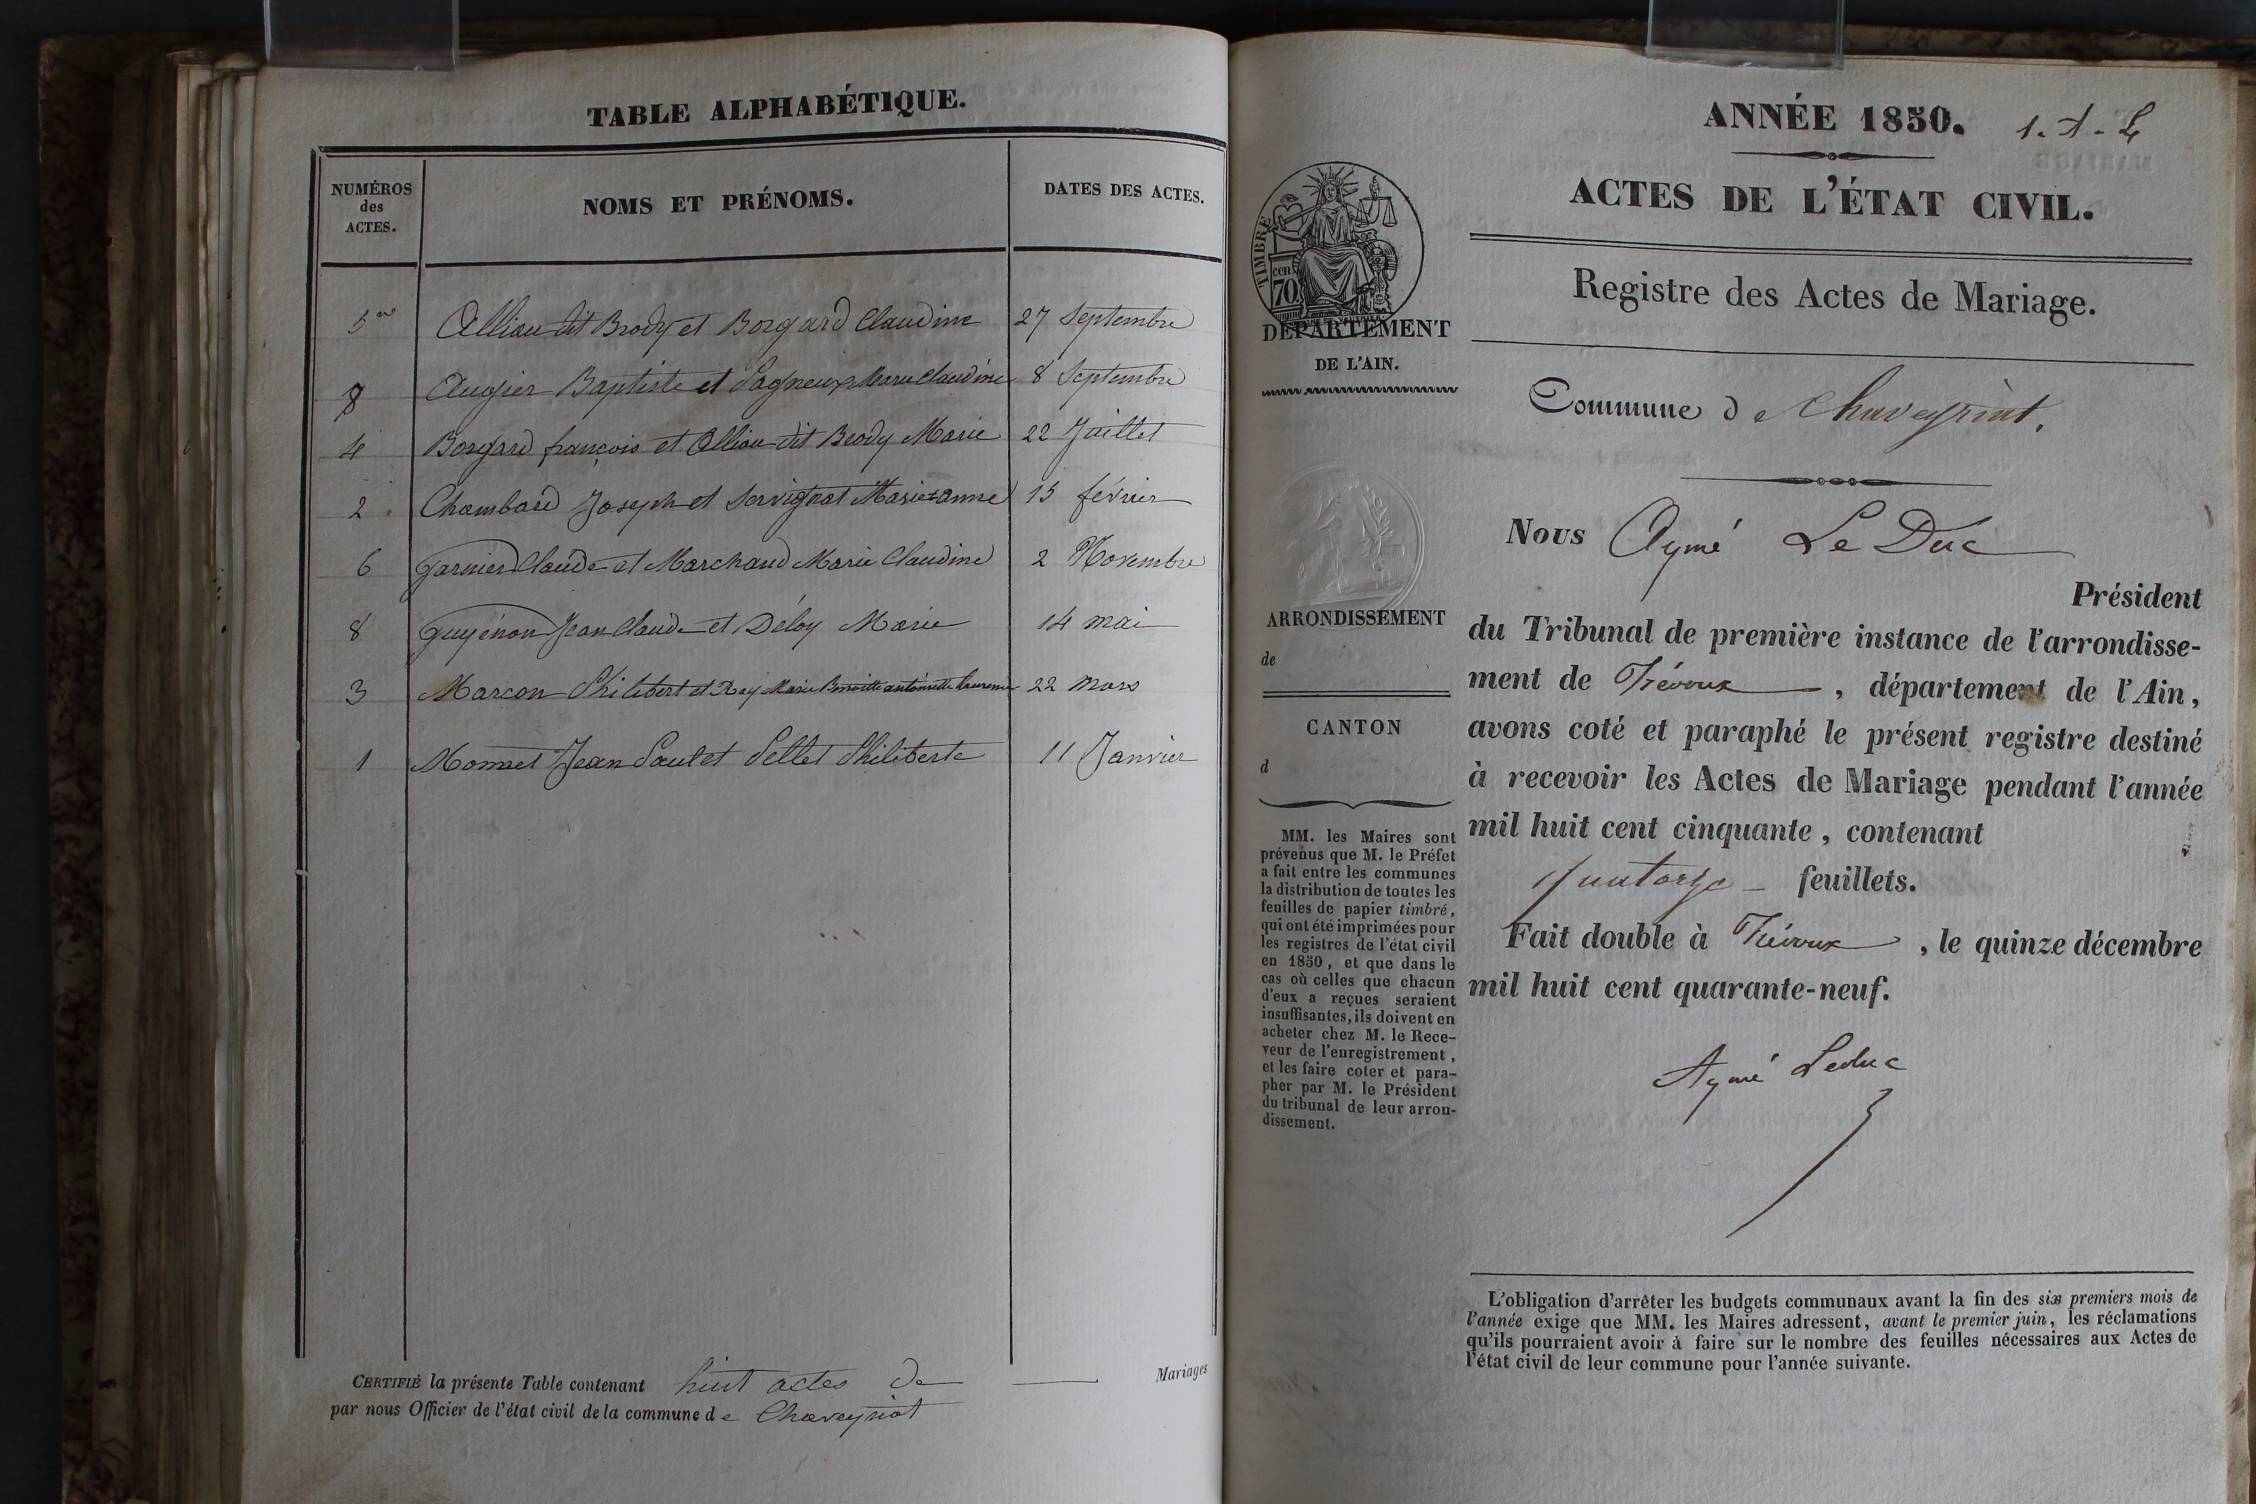 TABLE ALPHABÉTIQUE.
NUMÉROS
des
ACTES.
NOMS ET PRÉNOMS.
DATES DES ACTES.
5 Alliou dit Brody et Borgard Claudine 27 Septembre
Augier Baptiste et Sagneux Marie Claudine 8 Septembre
4 Borgard françois et Alliou dit Brody Marie 22 Juillet
2 Chambard Joseph et Servignat Marie=anne 15 février
6 Garnier Claude et Marchand Marie Claudine 2 Novembre
8 Guyénon Jean Claude et Déloy Marie 14 mai
3 Marcon Philibert et Rey Marie Benoitte antoinette 22 mars
1 Monnet Jean Paul et Pellet Philiberte 11 Janvier
CERTIFIÉ la présente Table contenant huit actes de Mariages
par nous Officier de l'état civil de la commune de Chaveyriat
ANNÉE 1850.
ACTES DE L'ÉTAT CIVIL.
Registre des Actes de Mariage.
TIMBRE
70 cen
DÉPARTEMENT
DE L'AIN.
Commune de Chaveyriat.
Nous Aymé Le Duc
Président
du Tribunal de première instance de l'arrondisse-
ment de Trévoux, département de l'Ain,
avons coté et paraphé le présent registre destiné
à recevoir les Actes de Mariage pendant l'année
mil huit cent cinquante, contenant
quatorze feuillets.
Fait double à Trévoux, le quinze décembre
mil huit cent quarante-neuf.
Aymé Leduc
ARRONDISSEMENT
de
CANTON
d
MM. les Maires sont
prévenus que M. le Préfet
a fait entre les communes
la distribution de toutes les
feuilles de papier timbré,
qui ont été imprimées pour
les registres de l'état civil
en 1850, et que dans le
cas où celles que chacun
d'eux a reçues seraient
insuffisantes, ils doivent en
acheter chez M. le Rece-
veur de l'enregistrement,
et les faire coter et para-
pher par M. le Président
du tribunal de leur arron-
dissement.
L'obligation d'arrêter les budgets communaux avant la fin des six premiers mois de
l'année exige que MM. les Maires adressent, avant le premier juin, les réclamations
qu'ils pourraient avoir à faire sur le nombre des feuilles nécessaires aux Actes de
l'état civil de leur commune pour l'année suivante.